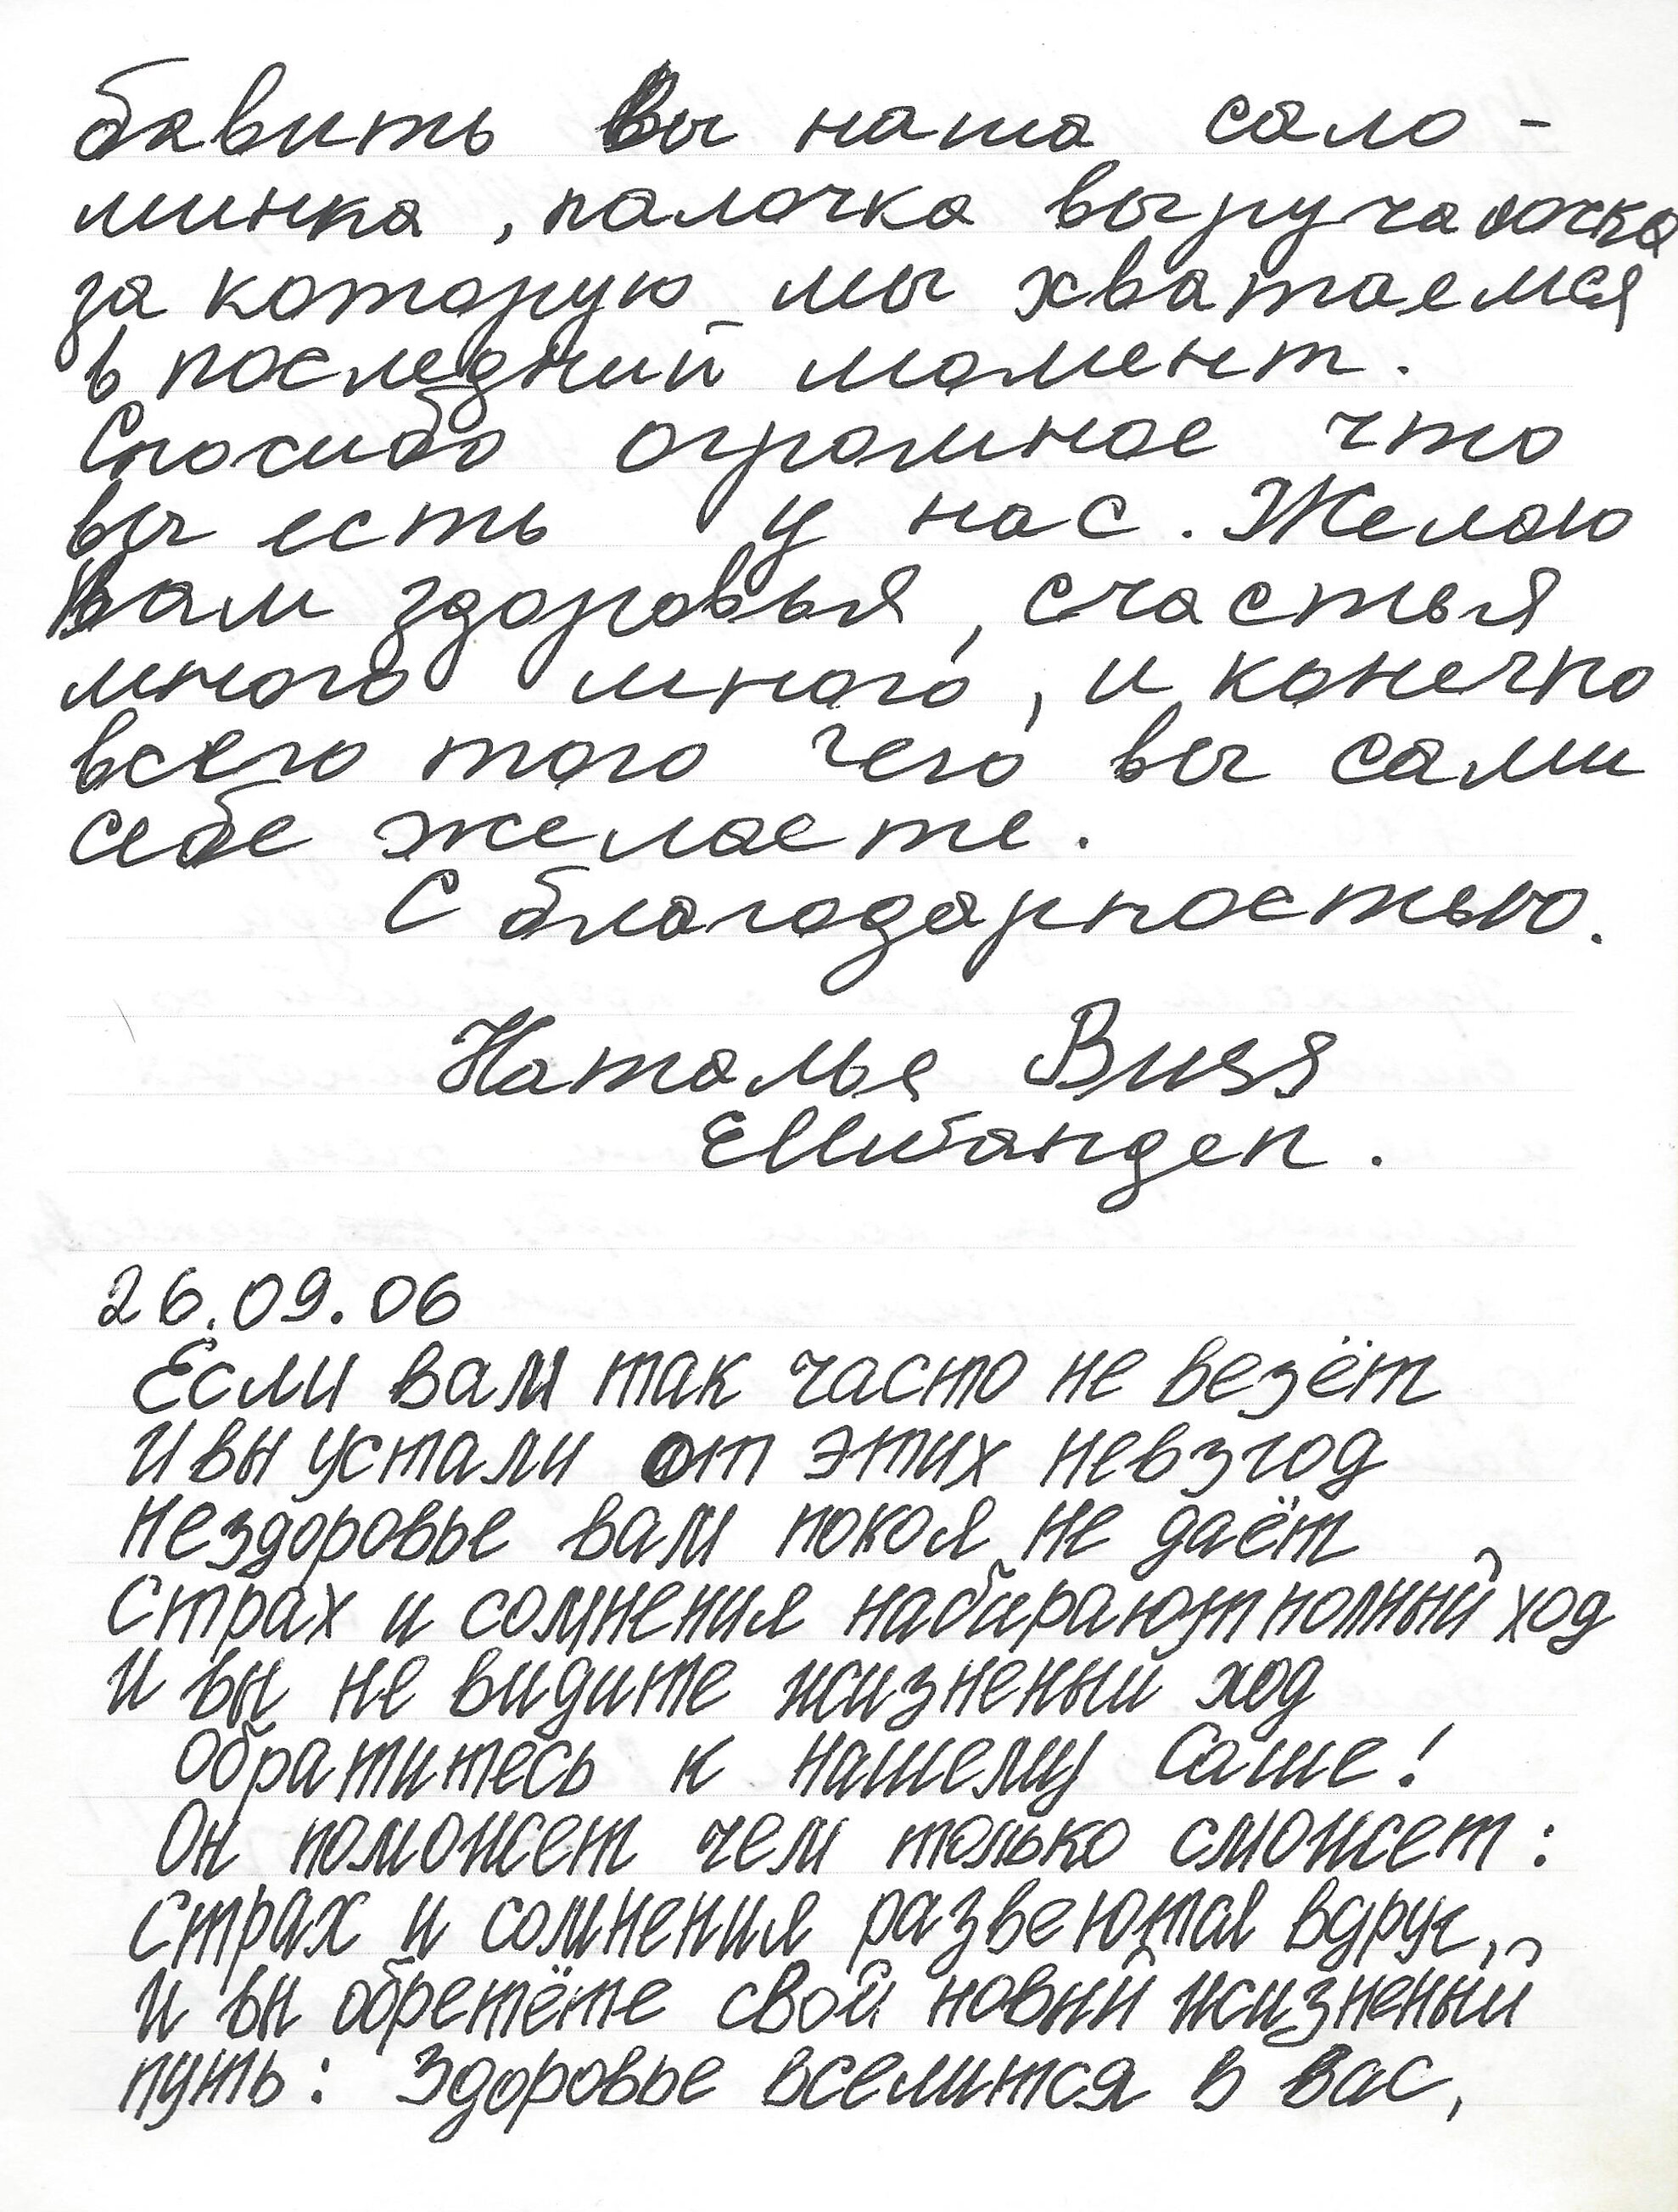 бавить Вы наша соло-
минка, палочка выручалочка
за которую мы хватаемся
в последний момент.
Спасибо огромное что
вы есть у нас. Желаю
Вам здоровья, счастья
много много, и конечно
всего того чего вы сами
себе желаете.
С благодарностью.
Наталья
26.09.06
Если вам так часто не везёт
И вы устали от этих невзгод
Нездоровье вам покоя не даёт
Страх и сомнения набирают полный ход
И вы не видите жизненый ход
Обратитесь к нашему Саше!
Он поможет чем только сможет:
Страх и сомнения развеются вдруг,
И вы обретёте свой новый жизненый
путь: Здоровье вселится в Вас,